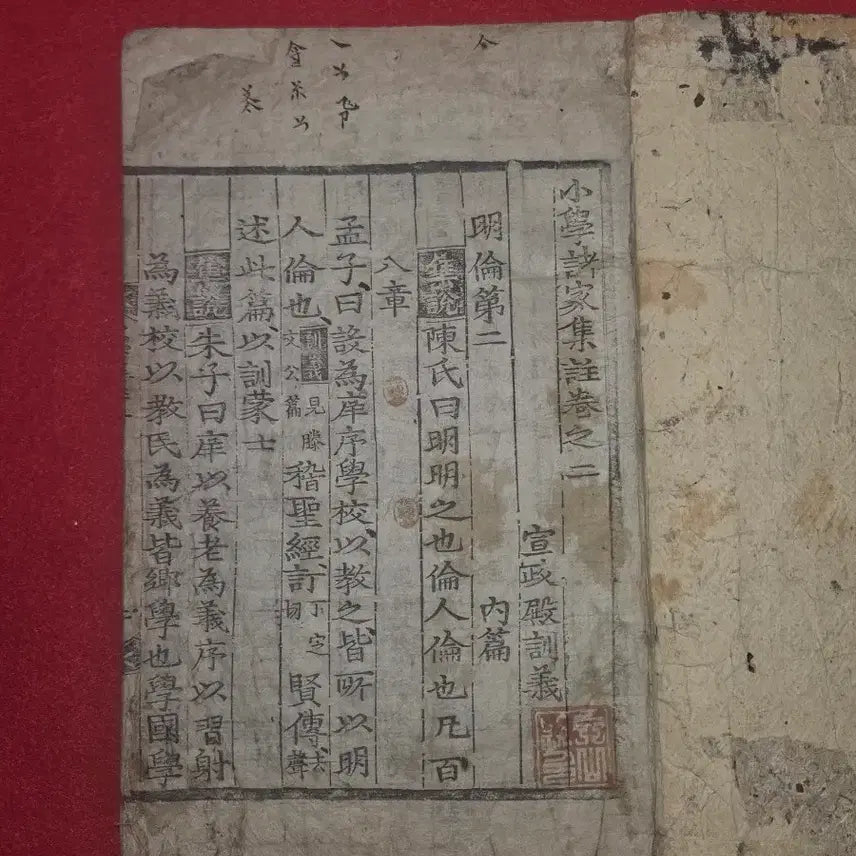 小學諸家集註卷之二
宣政殿訓義
明倫第二 內篇
集說陳氏曰明明之也倫人倫也凡百
八章
孟子曰設為庠序學校以教之皆所以明
人倫也訓義見滕文公篇稽聖經訂下定切賢傳去聲
述此篇以訓蒙士
集說朱子曰庠以養老為義序以習射
為義校以教民為義皆鄉學也學國學